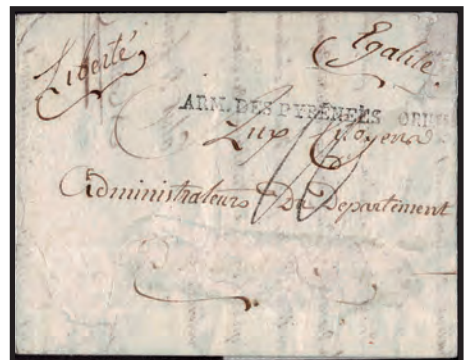 Liberté
Egalité
ARM. DES PYRÉNÉES ORIEN
Aux Citoyens
Administrateurs Du Departement